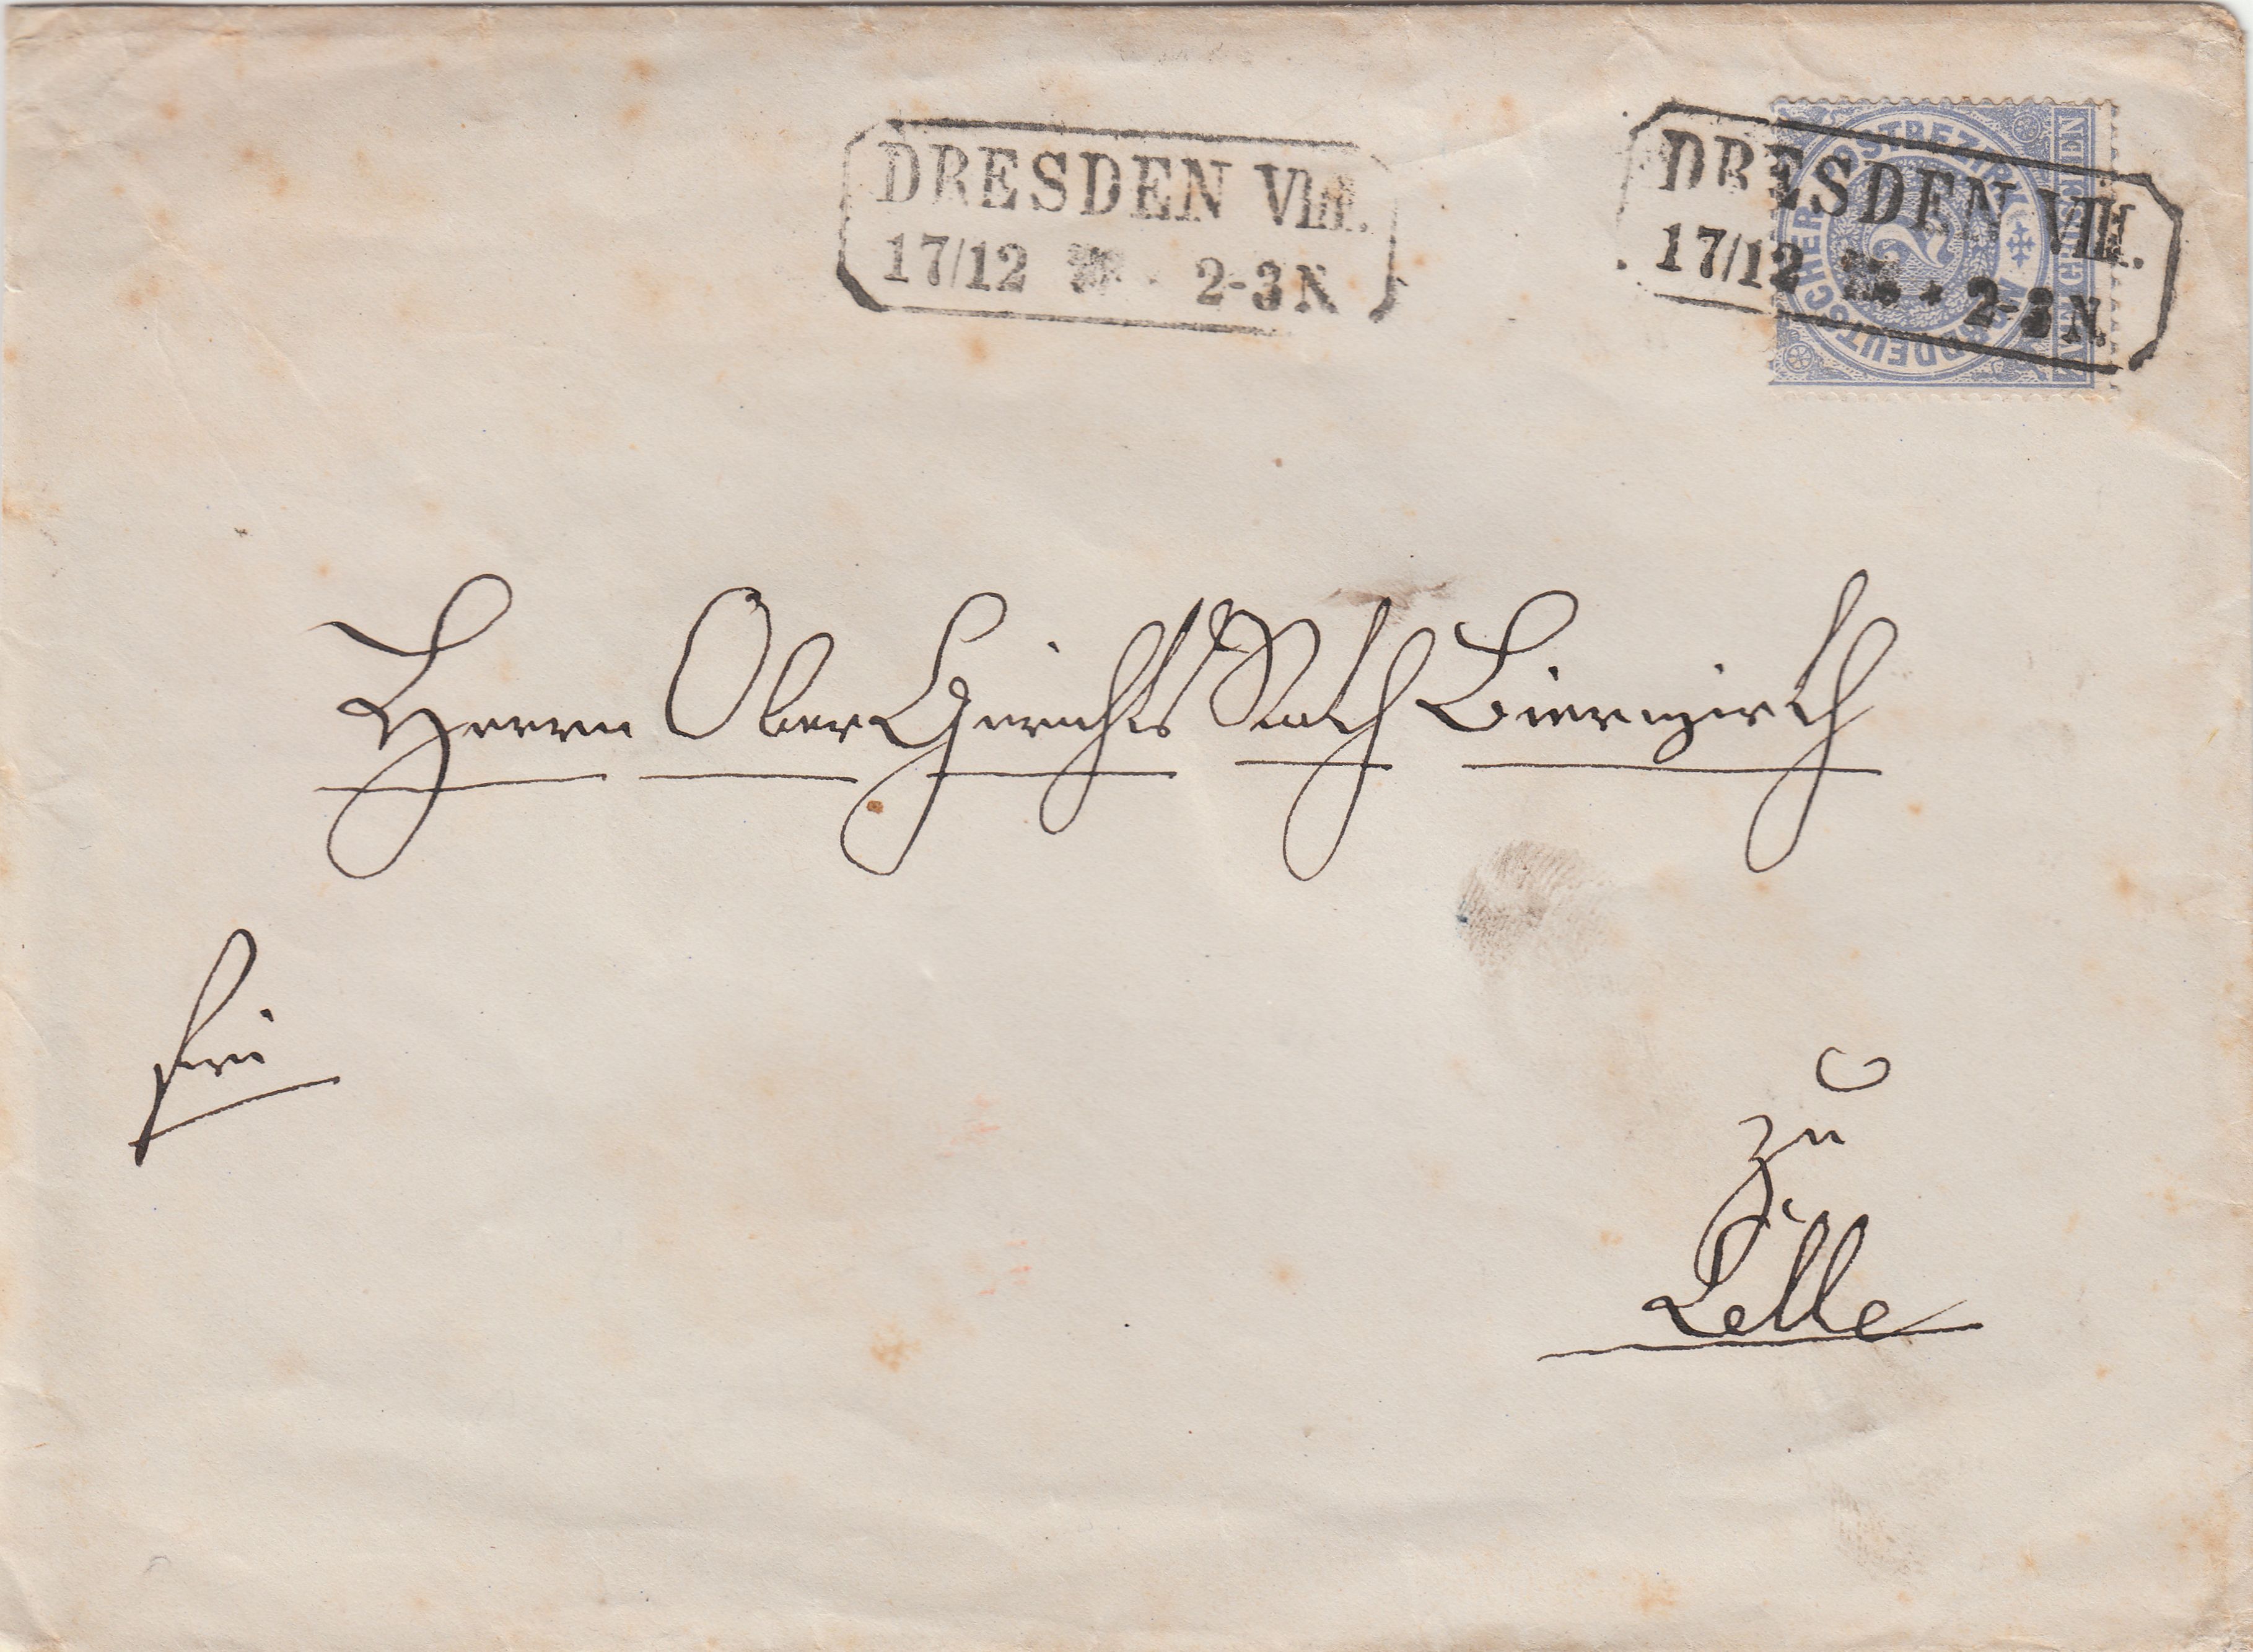 DRESDEN VIII.
17/12 2-3 N
DRESDEN VIII.
17/12 2-3 N
NORDDEUTSCHER POSTBEZIRK
2
ZWEI GROSCHEN
Herrn Ober Gerichts Rath
frei
zu
Celle